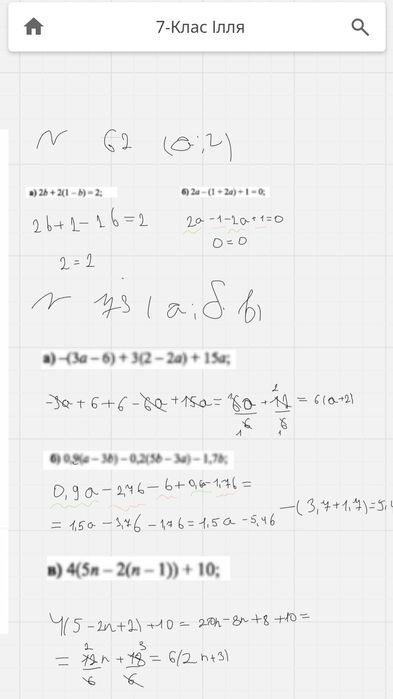 7-Клас Ілля
№ 62 (а;2)
а) 2b + 2(1 − b) = 2;
б) 2a − (1 + 2a) + 1 = 0;
2b+2−2b=2
2a−1−2a+1=0
2=2
0=0
№ 73 (а;б в)
а) −(3a − 6) + 3(2 − 2a) + 15a;
−3a+6+6−6a+15a= 6a/6 + 12/6 = 6(a+2)
1 2 1
б) 0,9(a − 3b) − 0,2(5b − 3a) − 1,7b;
0,9a−2,7b−b+0,6a−1,7b=
=1,5a−3,7b−1,7b=1,5a−5,4b
−(3,7+1,7)=5,4
в) 4(5n − 2(n − 1)) + 10;
4(5−2n+2)+10= 20n−8n+8+10=
= 12n/6 + 18/6 = 6(2n+3)
2 3